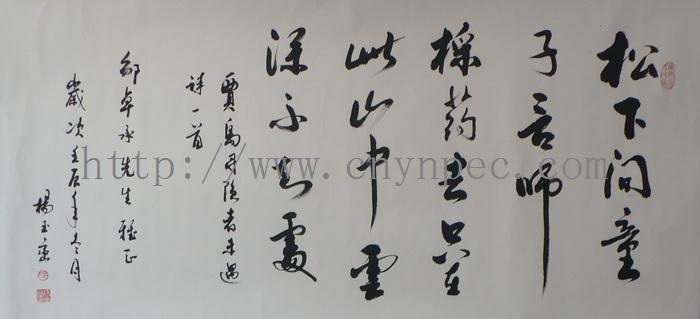 松下问童
子言师
採药去只在
此山中雲
深不知處
賈島尋隐者未遇
詩一首
邹卓承先生雅正
歲次壬辰年冬月
楊玉
http://www.cnynpec.com